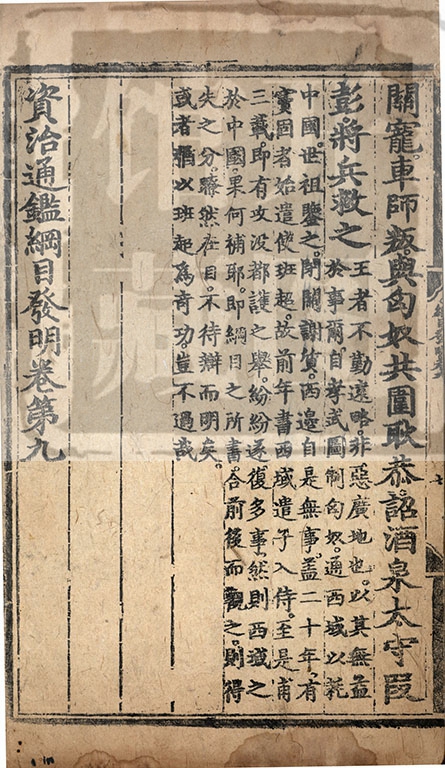 關寵車師叛與匈奴共圍耿恭詔酒泉太守段
彭將兵救之
王者不勤遠略非惡廣地也以其無益
於事爾自孝武圖制匈奴通西域以耗
中國世祖鑒之閉關謝質西邊自是無事蓋二十年有
竇固者始遣使班超故前年書西域遣子入侍至是甫
三載即有攻没都護之舉紛紛遂復多事然則西域之
於中國果何補耶即綱目之所書合前後而觀之則得
失之分瞭然在目不待辯而明矣
或者猶以班超爲奇功豈不過哉
資治通鑑綱目發明卷第九